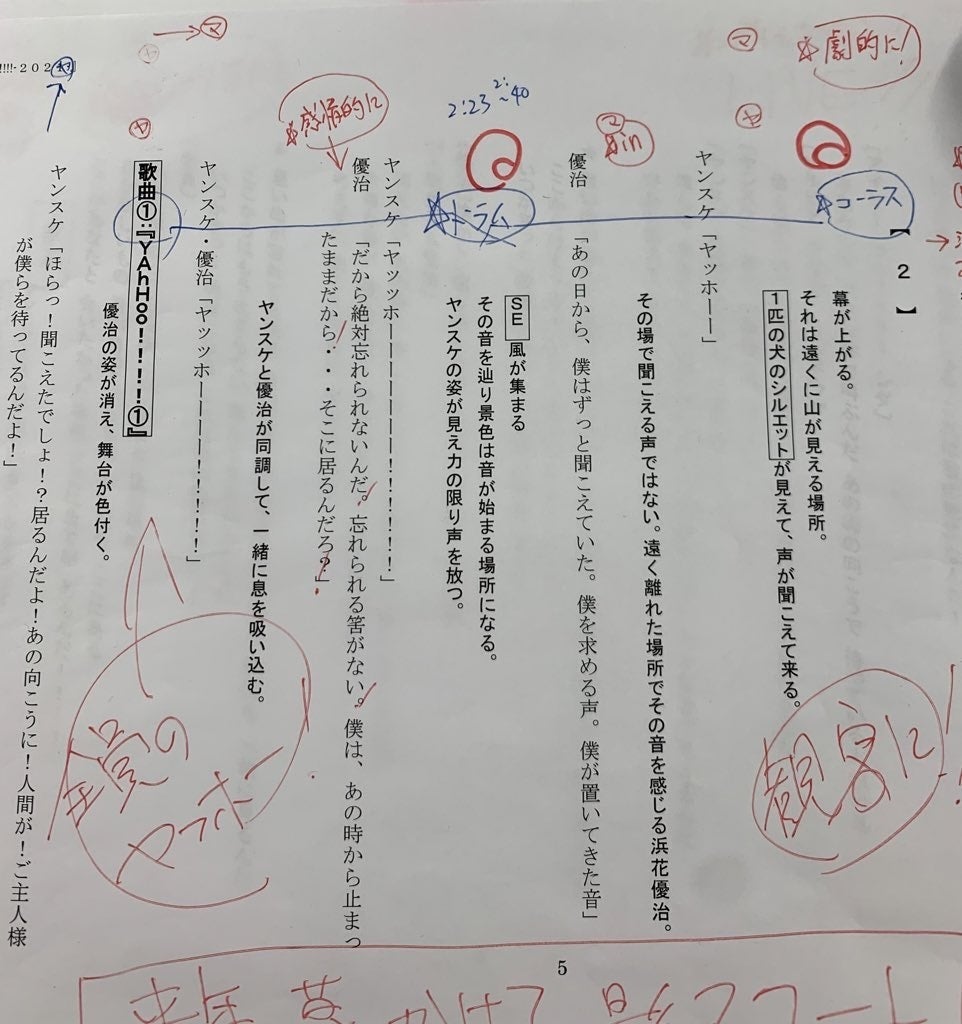 【２】
幕が上がる。
それは遠くに山が見える場所。
１匹の犬のシルエットが見えて、声が聞こえて来る。
ヤンスケ「ヤッホーー」
その場で聞こえる声ではない。遠く離れた場所でその音を感じる浜花優治。
優治　「あの日から、僕はずっと聞こえていた。僕を求める声。僕が置いてきた音」
ＳＥ 風が集まる
その音を辿り景色は音が始まる場所になる。
ヤンスケの姿が見え力の限り声を放つ。
ヤンスケ「ヤッホーーーーー！！！！！」
優治　「だから絶対忘れられないんだ。忘れられる筈がない。僕は、あの時から止まっ
たままだから・・・そこに居るんだろ？」
ヤンスケと優治が同調して、一緒に息を吸い込む。
ヤンスケ・優治「ヤッッホーーーーー！！！！！」
歌曲①:『YAhHoo！！！！！①』
優治の姿が消え、舞台が色付く。
ヤンスケ「ほらっ！聞こえたでしょ！？居るんだよ！あの向こうに！人間が！ご主人様
が僕らを待ってるんだよ！」
5
!!!!-202
劇的に！
マ
ヤ
コーラス
マ
in
2:23 2:~40
ドラム
感情的に
マ
ヤ
ヤ
観客に！
覚の
ヤッホー